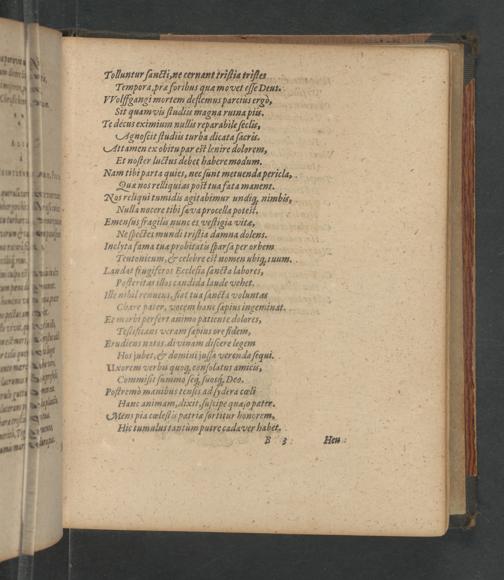 Tolluntur sancti, ne cernant tristia tristes
Tempora, præ foribus quæ movet esse Deus.
VVolffgangi mortem deflemus parcius ergò,
Sit quamvis studiis magna ruina pius.
Te decus eximium nullis reparabile seclis,
Agnoscit studiis turba dicata sacris.
Attamen ex obitu par est lenire dolorem,
Et noster luctus debet habere modum.
Nam tibi parta quies, nec sunt metuenda pericla,
Quæ nos relliquias post tua fata manent.
Nos reliqui tumidis agitabimur undiq, nimbis,
Nulla nocere tibi sæva procella potest.
Emensus fragilis nunc es vestigia vitæ,
Ne spectes mundi tristia damna dolens.
Inclyta fama tuæ probitatis sparsa per orbem
Teutonicum, & celebre est nomen ubiq, tuum.
Laudat frugiferos Ecclesia sancta labores,
Posteritas illos candida laude vehet.
Ille nihil renuens, fiat tua sancta voluntas
Chare pater, vocem hanc sæpius ingeminat.
Et morbi perfert animo patiente dolores,
Testificans veram sæpius ore fidem,
Erudiens natos, divinam discere legem
Hos jubet, & domini jussa verenda sequi.
Uxorem verbis quoq, consolatus amicis,
Commisit summo seq, suosq, Deo.
Postremò manibus tensis ad sydera cœli
Hanc animam, dixit, suscipe quæso pater.
Mens pia cœlestis patriæ sortitur honorem,
Hic tumulus tantùm putre cadaver habet.
B 3 Heu